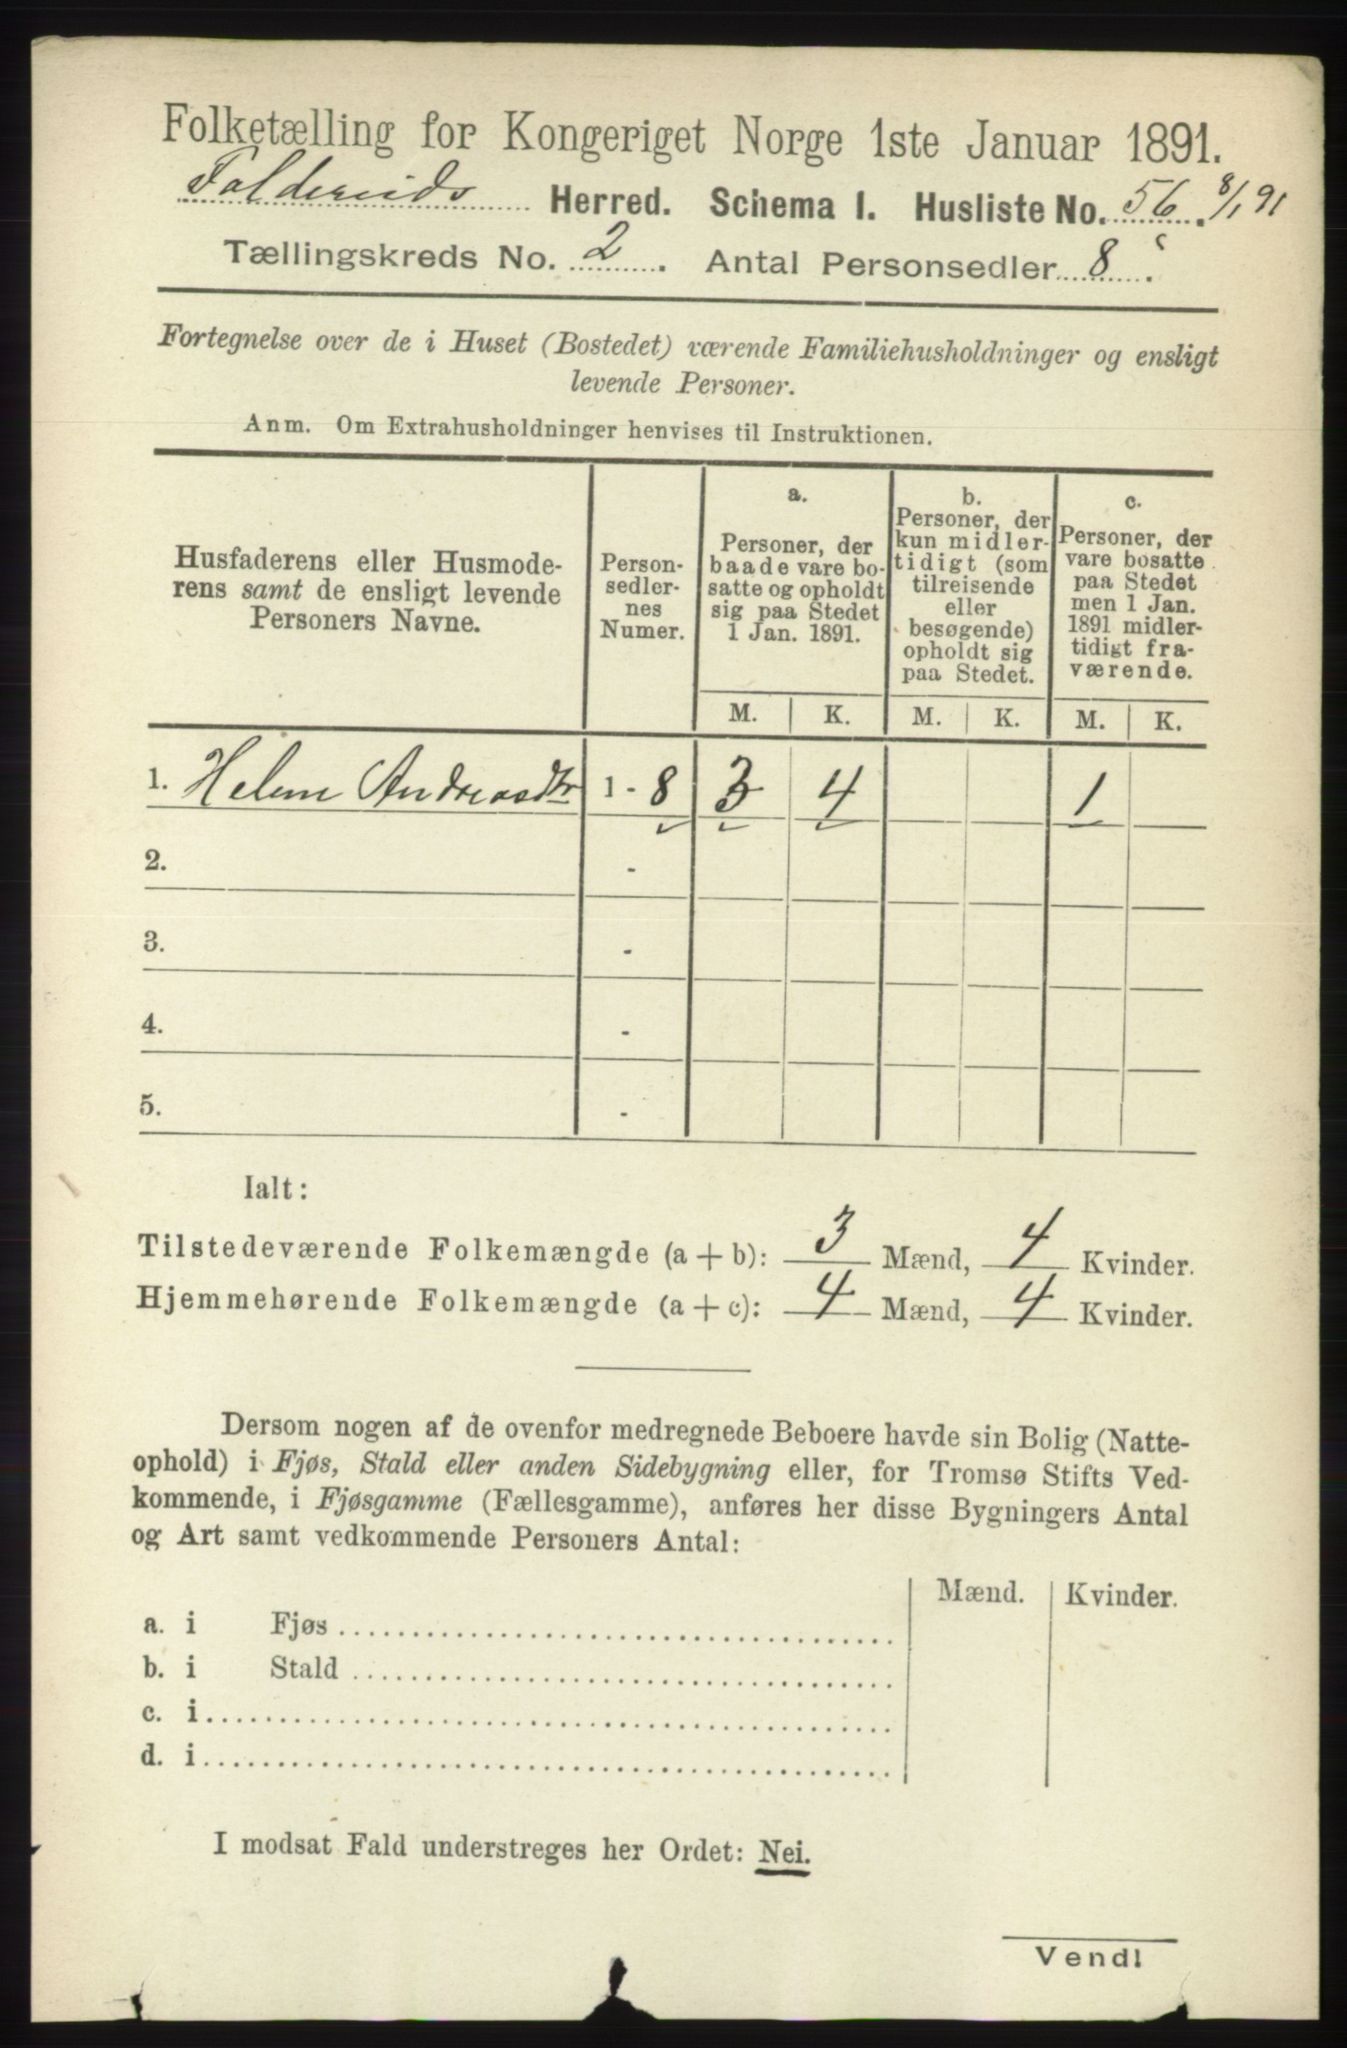 Folketælling for Kongeriget Norge 1ste Januar 1891.
Foldereids Herred. Schema I. Husliste No. 56. 8/1 91
Tællingskreds No. 2. Antal Personsedler 8.
Fortegnelse over de i Huset (Bostedet) værende Familiehusholdninger og ensligt
levende Personer.
Anm. Om Extrahusholdninger henvises til Instruktionen.
Husfaderens eller Husmode-
rens samt de ensligt levende
Personers Navne.
Person-
sedler-
nes
Numer.
a.
Personer, der
baade vare bo-
satte og opholdt
sig paa Stedet
1 Jan. 1891.
b.
Personer, der
kun midler-
tidigt (som
tilreisende
eller
besøgende)
opholdt sig
paa Stedet.
c.
Personer, der
vare bosatte
paa Stedet
men 1 Jan.
1891 midler-
tidigt fra-
værende.
M. K. M. K. M. K.
1. Helene Andreasdtr 1 - 8 3 4 1
2. -
3. -
4. -
5. -
Ialt:
Tilstedeværende Folkemængde (a + b): 3 Mænd, 4 Kvinder.
Hjemmehørende Folkemængde (a + c): 4 Mænd, 4 Kvinder.
Dersom nogen af de ovenfor medregnede Beboere havde sin Bolig (Natte-
ophold) i Fjøs, Stald eller anden Sidebygning eller, for Tromsø Stifts Ved-
kommende, i Fjøsgamme (Fællesgamme), anføres her disse Bygningers Antal
og Art samt vedkommende Personers Antal:
Mænd. Kvinder.
a. i Fjøs
b. i Stald
c. i
d. i
I modsat Fald understreges her Ordet: Nei.
Vend!